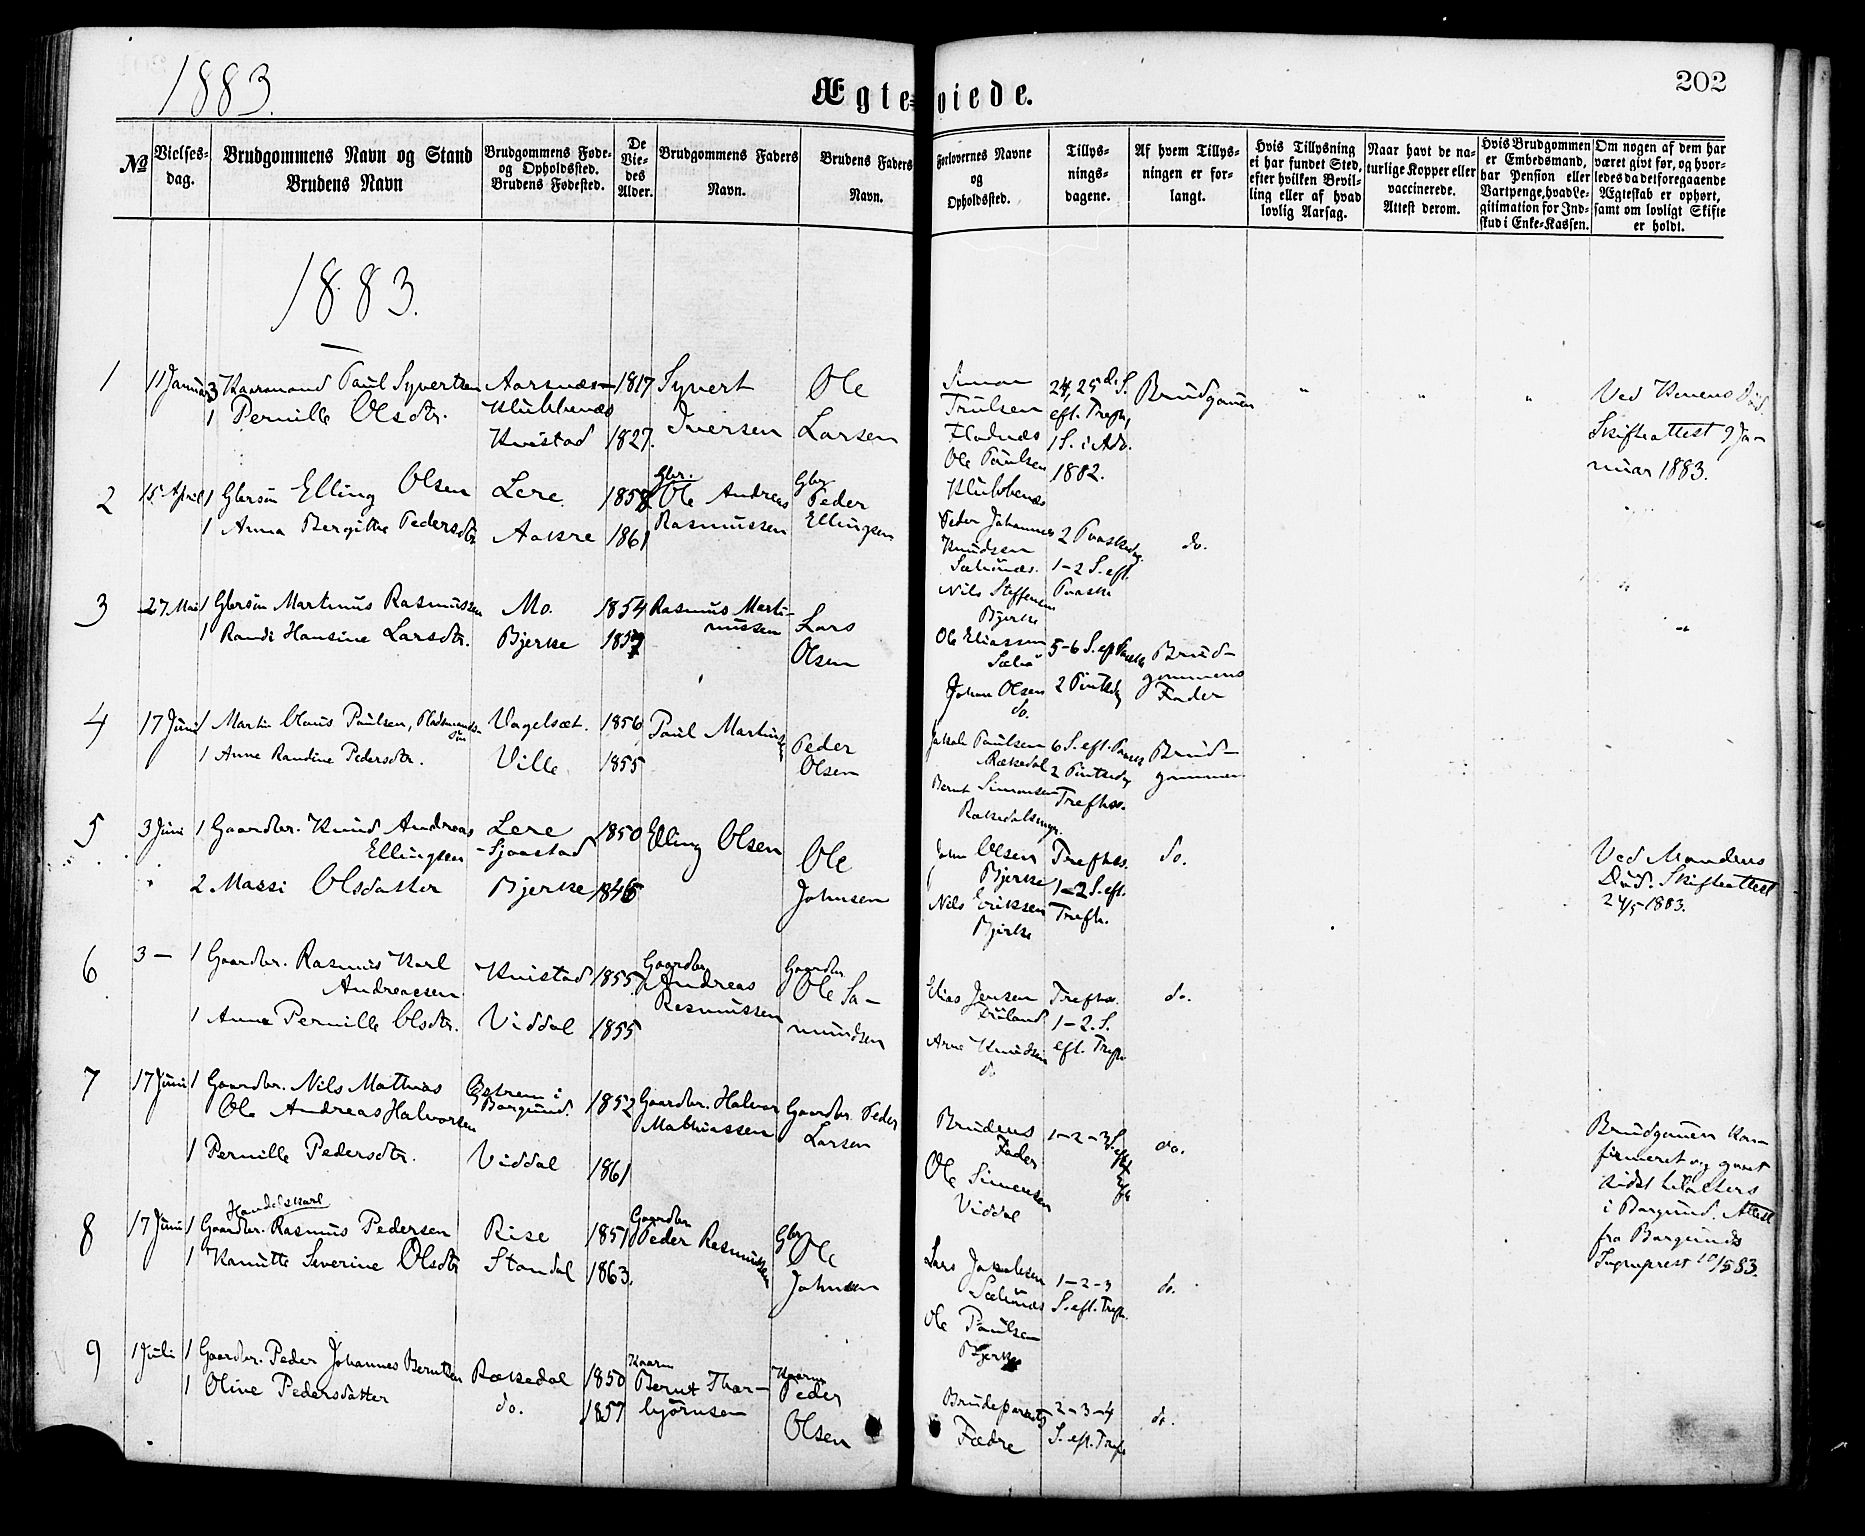 1883.
Ægteviede.
202
No
Vielses-
dag.
Brudgommens Navn og Stand
Brudens Navn
Brudgommens Føde-
og Opholdssted.
Brudens Fødested.
De
Vie-
des
Alder.
Brudgommens Faders
Navn.
Brudens Faders
Navn.
Forlovernes Navne
og
Opholdssted.
Tillys-
nings-
dagene.
Af hvem Tillys-
ningen er for-
langt.
Hvis Tillysning
ei har fundet Sted,
efter hvilken Bevil-
ling eller af hvad
lovlig Aarsag.
Naar havt de na-
turlige Kopper eller
vaccinerede.
Attest derom.
Hvis Brudgommen
er Embedsmand,
har Pension eller
Vartpenge, hvad Le-
gitimation for Ind-
skud i Enke-Kassen.
Om nogen af dem har
været givt før, og hvor-
ledes da det foregaaende
Ægteskab er ophørt,
samt om lovligt Skifte
er holdt.
1883.
1
11 Januar
3 Kaarmand Paul Syvertsen
1 Pernille Olsdtr.
Aarsnæs—
Klubbenæs
Kvistad
1817
1827.
Syvert
Iversen
Ole
Larsen
Simon
Trulsen
Flodnæs
Ole Paulsen
Klubbenæs
24, 25 d. S.
eft. Trefh.,
1 S. i Adv.
1882.
Brudgomen
"
"
"
Ved Konens Død
Skifteattest 9 Ja-
nuar 1883.
2
15 April
1 Gbrsøn Elling Olsen
1 Anna Bergitha Pedersdtr.
Lere
Aakre
1858
1861
Gbr.
Ole Andreas
Rasmussen
Gbr
Peder
Ellingsen
Peder Johannes
Knudsen
Sæbønæs.
Nils Steffensen
Bjerke
2 Paaskedag
1-2 S. eft.
Paaske
do.
"
3
27 Mai
1 Gbrsøn Martinus Rasmussen
1 Randi Hansine Larsdtr.
Mo.
Bjerke
1854
1857
Rasmus Marti-
nussen
Lars
Olsen
Ole Eliassen
Sæbø
Johan Olsen
do.
5-6 S. eft Paaske
2 Pintsedag
Brud-
gommens
Fader
"
4
17 Juni
1 Martin Claus Paulsen, Pladsmands-
søn
1 Anne Randine Pedersdtr.
Vagelsæt.
Ville
1856
1855
Paul Martinsen
Peder
Olsen
Jakob Paulsen
Rækedal
Bernt Simonsen
6 S. eft. Paaske
2 Pintsedag
Trefhs.
Brud-
gommen
5
3 Juni
1 Gaardbr. Knud Andreas
Ellingsen
2 Massi Olsdatter
Lere
-Sjaastad
Bjerke
1850
1846
Elling Olsen
Ole
Johnsen
John Olsen
Bjerke
Nils Eriksen
Bjerke
Trefhs.
1-2 S. eft.
Trefh.
do.
Ved Mandens
Død. Skifteattest
24/5 1883.
6
3 —
1 Gaardbr. Rasmus Karl
Andreasen
1 Anne Pernille Olsdtr.
Kvistad
Viddal
1855
1855
Gaardbr
Andreas
Rasmussen
Gaardbr
Ole Sa-
mundsen
Elias Jensen
Arne Knudsen
do
Trefhs.
1-2. S.
eft. Trefh.
do.
7
17 Juni
1 Gaardbr. Nils Mathias
Ole Andreas Halvorsen
1 Pernille Pedersdtr.
i
Borgund.
Viddal
1852
1861
Gaardbr. Halvor
Mathiassen
Gaardbr. Peder
Larsen
Brudens
Fader
Ole Simensen
Viddal
1-2-3 S. eft
Trefh
do.
Brudgomen Kon-
firmeret og gaaet
sidst til Alters
i Borgund. Attest
fra Borgunds
Sogneprest 10/5 83.
8
17 Juni
Handelskarl
1 Gaardbr. Rasmus Pedersen
1 Kanutte Severine Olsdtr
Rise
Standal
1851
1863.
Gaardbr
Peder Rasmussen
Gbr
Ole
Johnsen
Lars Jakobsen
Sæbønæs
Ole Paulsen
Bjerke
1-2-3
S. eft. Trefh.
do.
9
1 Juli
1 Gaardbr. Peder Johannes Berntsen
1 Oline Pedersdatter
Rækedal
do.
1850
1857
Kaarm
Bernt Thor-
bjørnsen
Kaarm
Peder
Olsen
Brudeparrets
Fædre
2-3-4
S. eft. Trefh
do.